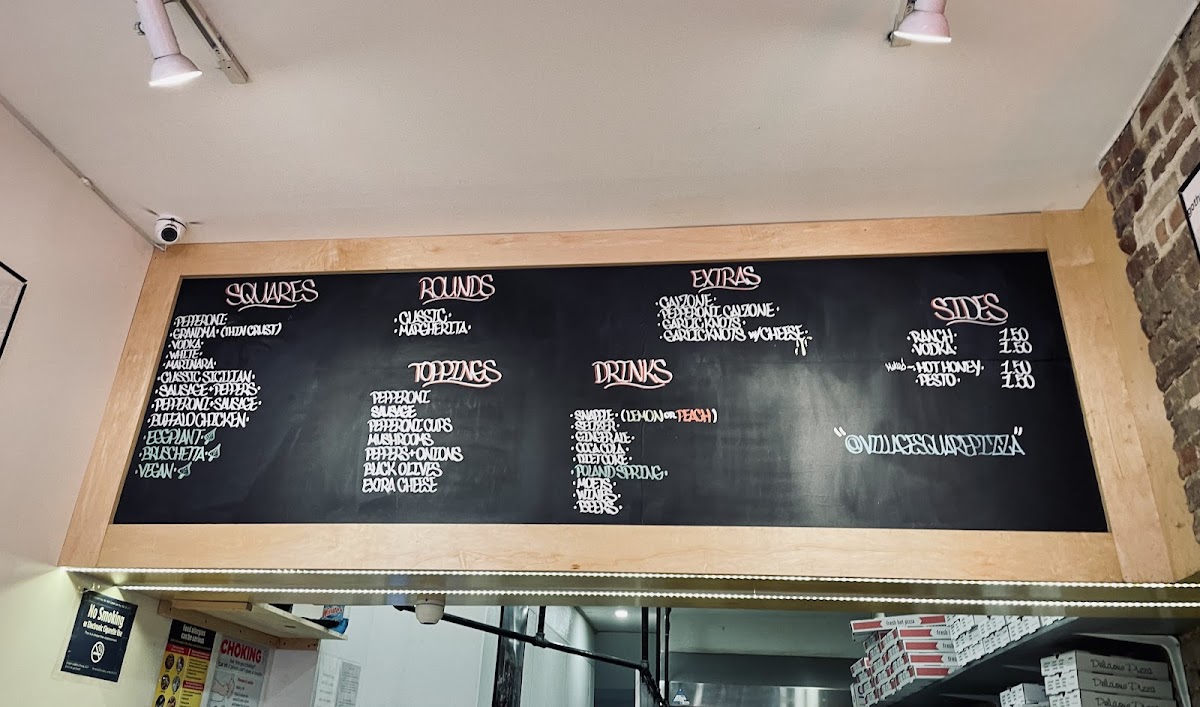 SQUARES
• PEPPERONI •
• GRANDMA • (THIN CRUST)
• VODKA •
• WHITE •
• MARINARA •
• CLASSIC SICILIAN •
• SAUSAGE + PEPPERS •
• PEPPERONI + SAUSAGE •
• BUFFALO CHICKEN •
• EGGPLANT •
• BRUSCHETTA •
• VEGAN •
ROUNDS
• CLASSIC •
• MARGHERITA •
TOPPINGS
PEPPERONI
SAUSAGE
PEPPERONI CUPS
MUSHROOMS
PEPPERS + ONIONS
BLACK OLIVES
EXTRA CHEESE
EXTRAS
• CALZONE •
• PEPPERONI CALZONE •
• GARLIC KNOTS •
• GARLIC KNOTS w/CHEESE •
DRINKS
• SNAPPLE • (LEMON OR PEACH)
• SELTZER •
• GINGER ALE •
• COCA COLA •
• DIET COKE •
• POLAND SPRING •
• WINES •
• BEERS •
SIDES
• RANCH • 1.50
• VODKA • 1.50
• HOT HONEY • 1.50
• PESTO • 1.50
"@VILLAGESQUAREPIZZA"
No Smoking
or Electronic Cigarette Use
CHOKING
fresh hot pizza
fresh
Delicious Pizza
Delicious Pizza